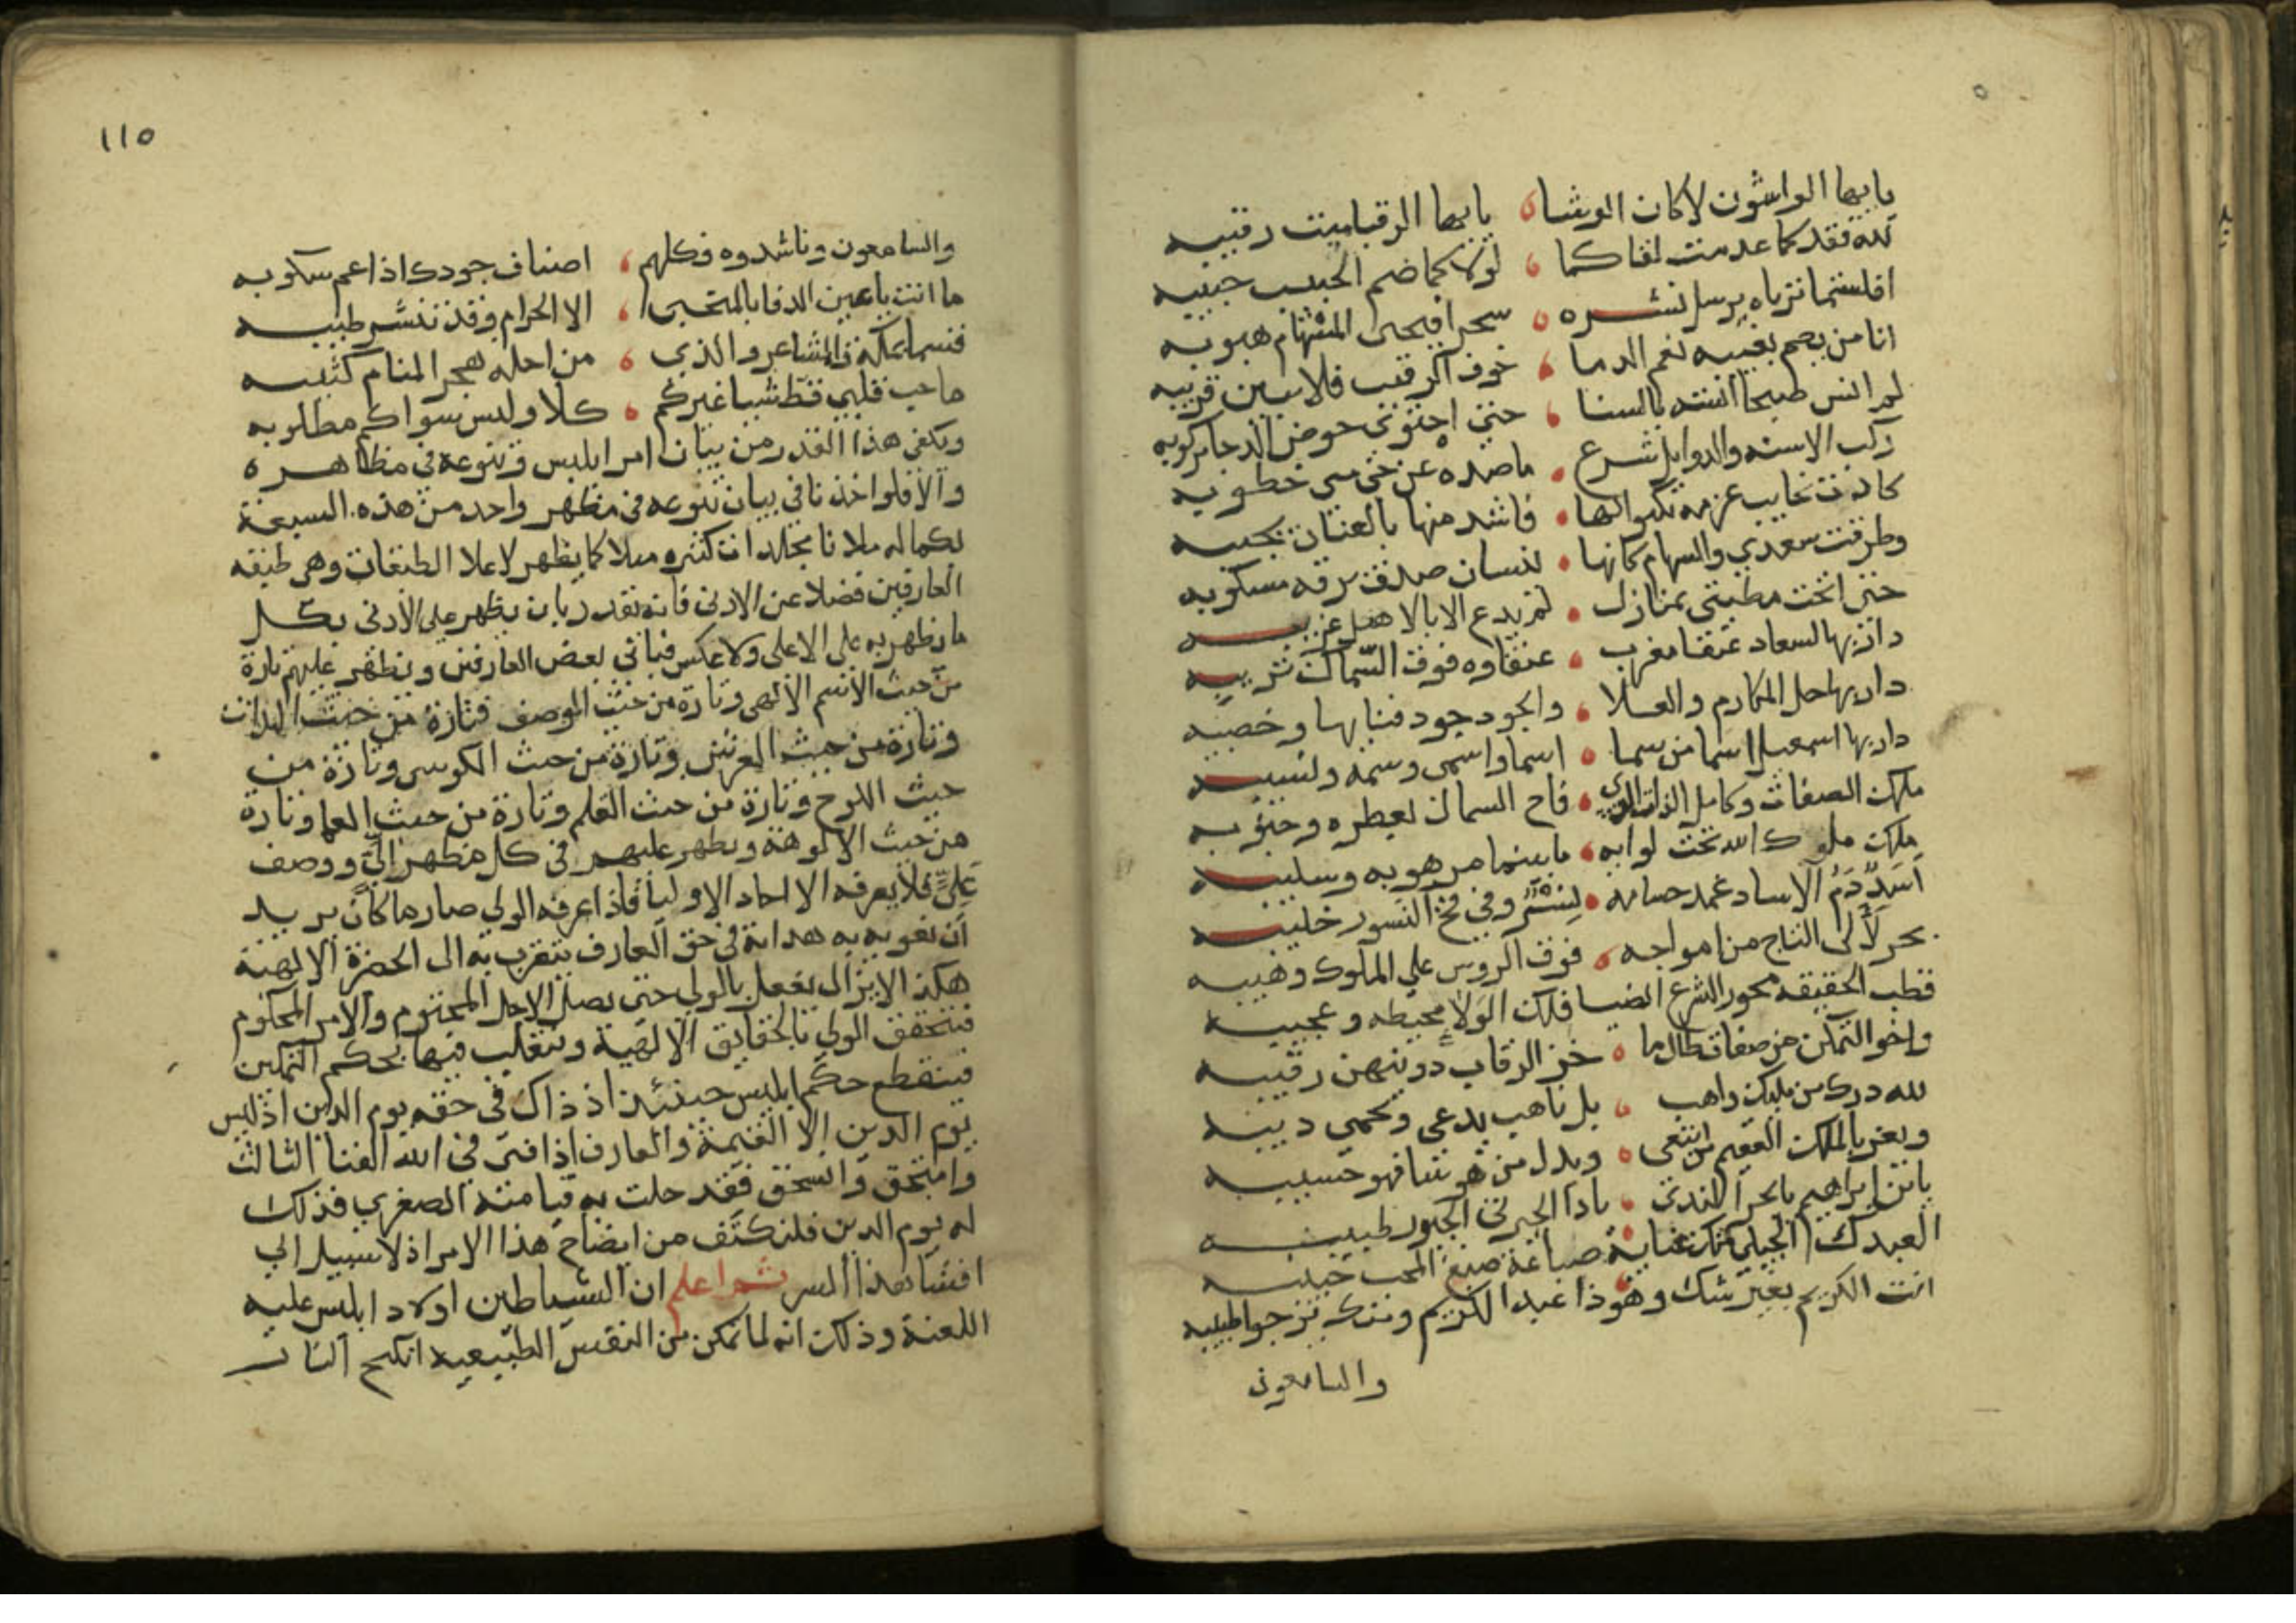 يايها الواشون لاكان الوشاة يايها الرقبا ميت رقيبه
لله فقدكما عدمت لقاكما لولاكما ضم الحبيب حبيبه
افلستما نرياه يرسل نشره سحرا فيحى المستهام هبوبه
انا من يصم بغيبه نعم الدما خوف الرقيب فلا يبين قريبه
لم انس صبحا انسته بالسنا حتى احتوتى حوض الدجا مركوبه
ركب الاسنه والدوابل شرع ما صده عن حتى مى خطوبه
كادت نجايب عزمه تكبوا لها فاشد منها بالعنان نجيبه
وطرقت سعدي والسهام كانها نيسان صدقت برقه مسكوبه
حتى انخت مطيتى بمنازل لم يدع الا بالاهل غريبه
دار بها لسعاد عنقا مغرب عنقاوه فوق السماك تريبه
دار بها حل المكارم والعلا والجود جود فنابها وخصيبه
دار بها اسمعيل اسما من سما اسما واسمى وسمه ونسيبه
ملك الصفات وكامل الذات الذي فاح السمال لعطره وجنوبه
ملك ملوك الله تحت لوايه ما بينما مرهوبه وسليبه
اسد دم الاساد غمد حسامه لنسر وفي مخ النسور خليبه
بحر لآلى التاج من امواجه فوق الروس على الملوك وهيبه
قطب الحقيقه محور الشرع الضيا فلك الولا محيطه وعجيبه
واخو التمكن من صفات طال ما خز الرقاب دونهن رقيبه
لله درك من مليك واهب بل ناهب يدعى ويحمى ديبه
ويعز بالملك العقيم من ابتغى ويدل من هو شا فهو حسيبه
يابن ابراهيم يا بحر الندى يا ذا الجبرتى الجبور طبيبه
العبدك الجيلى منك عناية صباغة صبغ المحب حبيبه
انت الكريم بغير شك وهو ذا عبد الكريم ومنك يرجوا طيبه
والسامعون
١١٥
والسامعون وناشدوه وكلهم اصناف جودك اذا عم سكوبه
ما انت يا عين الدفا بالمنحنى الا الحرام وقد تنشر طيبه
قسما بمكة والمشاعر والذي من احله هجر المنام كئيبه
ما حب قلبي قط شيا غيركم كلا وليس سواكم مطلوبه
ويكفى هذا القدر من بيان امر ابليس وتنوعه في مظاهره
والا فلو اخذنا في بيان تنوعه في مظهر واحد من هذه السبعة
بكماله ملانا مجلدات كثيره مثلا كما يظهر لاعلا الطبقات وهر طبقه
العارفين فضلا عن الادنى فانه يقدر بان يظهر على الادنى بكل
ما يظهر به على الاعلى ولا عكس فياتي بعض العارفين ويظهر عليهم تارة
من حيث الاسم الالهى وتارة من حيث الوصف وتارة من حيث الذات
وتارة من حيث العرش وتارة من حيث الكرسى وتارة من
حيث اللوح وتارة من حيث القلم وتارة من حيث العما وتارة
من حيث الالوهة ويظهر عليهم في كل مظهر الي ووصف
علي فلا يعرفه الا احاد الاوليا فاذا عرفه الولي صار ما كان يريد
ان يغويه به هداية في حق العارف يتقرب به الى الحضرة الالهية
هكذا لا يزال يفعل بالولي حتى يصل الاجل المحتوم والامر المحكوم
فيتحقق الولي بالحقايق الالهية ويتقلب فيها بحكم التمكين
فينقطع حكم ابليس حينئذ اذ ذاك في حقه يوم الدين اذ ليس
يوم الدين الا القيمة والعارف اذا فنى في الله الفنا الثالث
وامتحق وانسحق فقد حلت به قيامته الصغري فذلك
له يوم الدين فلنكتف من ايضاح هذا الامر اذ لا سبيل الي
افشا هذا السر ثم اعلم ان الشياطين اولاد ابليس عليه
اللعنة وذلك انه لما تمكن من النفس الطبيعية انكح النار